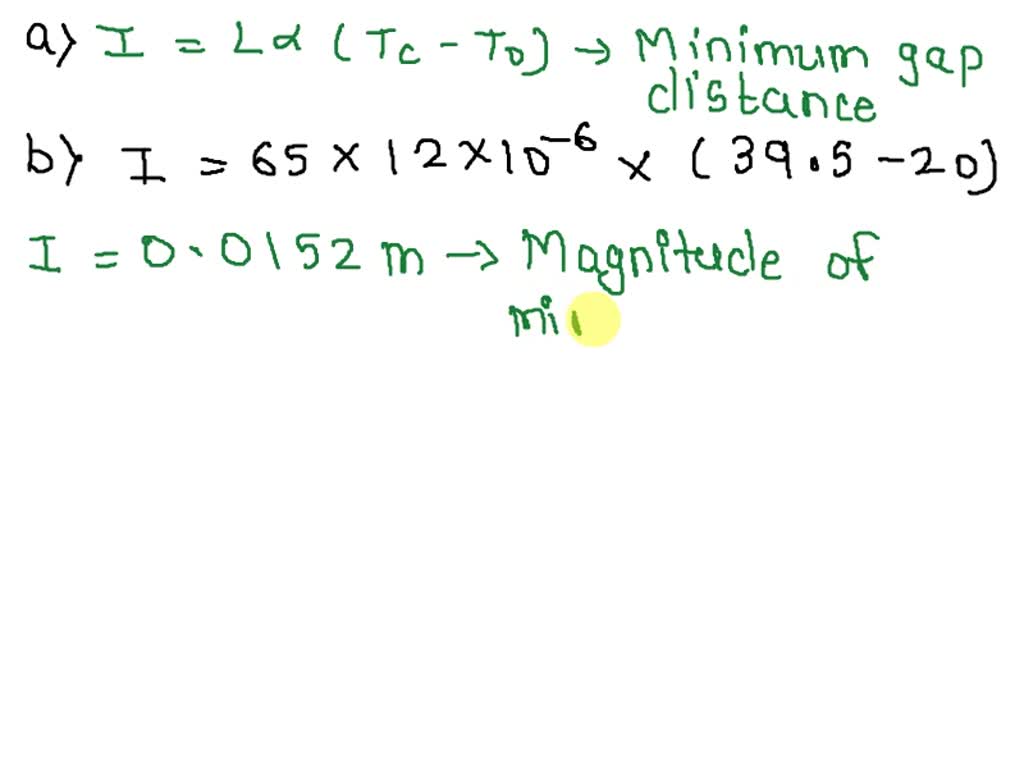 a) I = Lα (Tc - To) → Minimum gap
distance
b) I = 65 × 12 × 10⁻⁶ × (39.5 - 20)
I = 0.0152 m → Magnitude of
mi